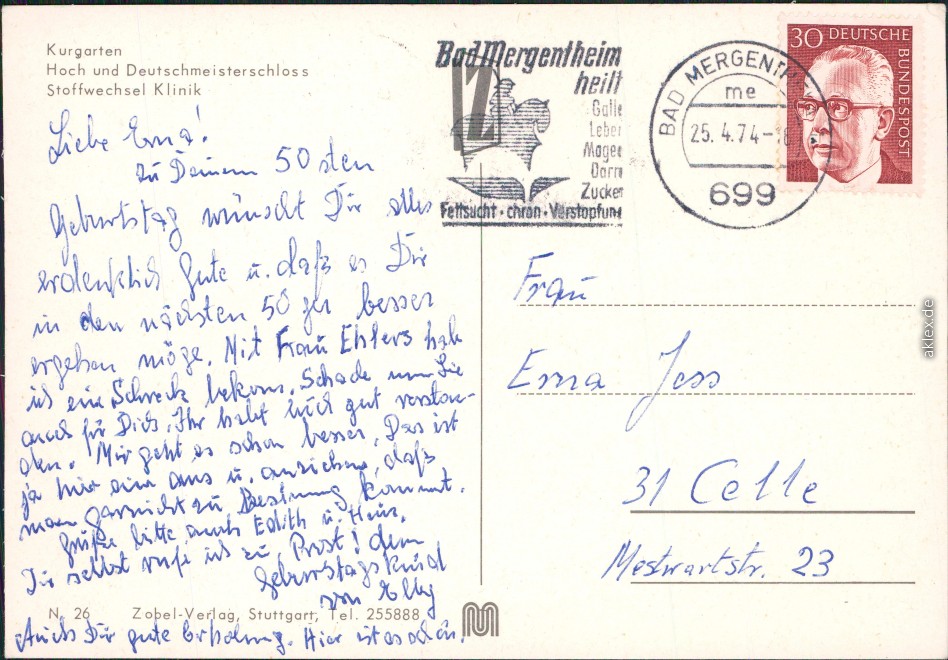 Kurgarten
Hoch und Deutschmeisterschloss
Stoffwechsel Klinik
Liebe Erna!
Zu Deinem 50sten
Geburtstag wünscht Dir alles
erdenklich Gute u. daß es Dir
in den nächsten 50 besser
ergehen möge. Mit Frau Ehlers habe
ich ein Schreck bekom. Schade um Sie
auch für Dich. Ihr habt euch gut verstan-
den. Mir geht es schon besser. Das ist
ja hier ein aus u. anziehen, daß
man garnicht zu Besinnung kommt.
Grüße bitte auch Edith u.
Dir selbst rufe ich zu, Prost! dem
Geburtstagskind
von
Auch Dir gute Erholung. Hier ist es schön.
N. 26 Zobel-Verlag, Stuttgart, Tel. 255888
Bad Mergentheim
heilt
Galle
Leber
Magen
Darm
Zucker
Fettsucht · chron · Verstopfung
BAD MERGENTH
me
25.4.74-18
699
30 DEUTSCHE
BUNDESPOST
Frau
Erna Jess
31 Celle
Mestwartstr. 23
aklex.de